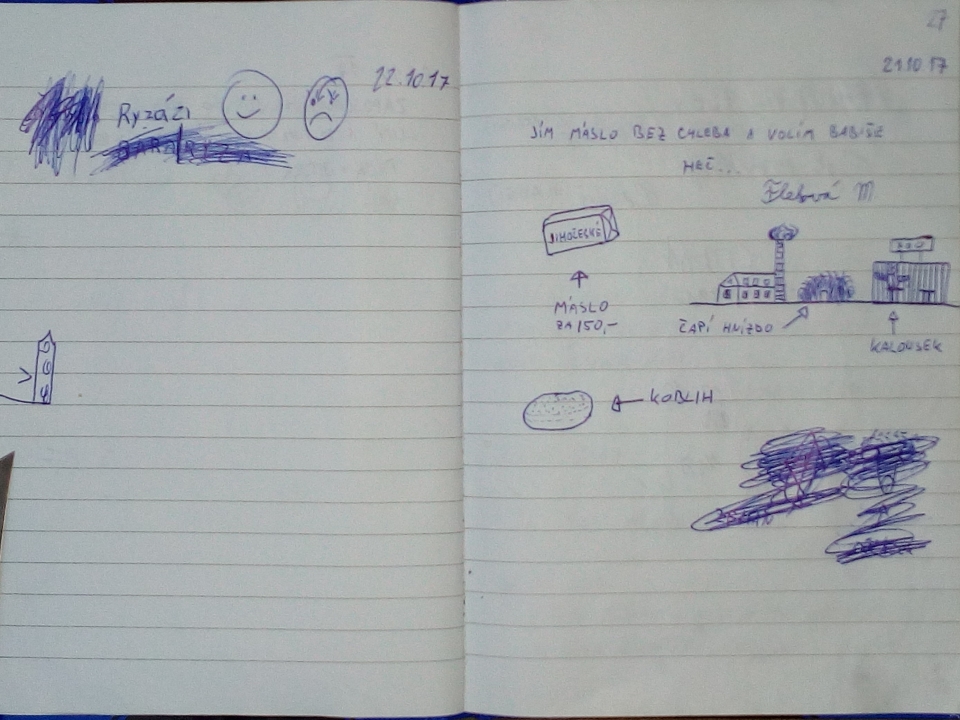 22.10.17
Ryzáči
27
21.10 17
JÍM MÁSLO BEZ CHLEBA A VOLÍM BABIŠE
HEČ...
JIHOČESKÉ
MÁSLO
ZA 150,-
ČAPÍ HNÍZDO
KALOUSEK
KOBLIH